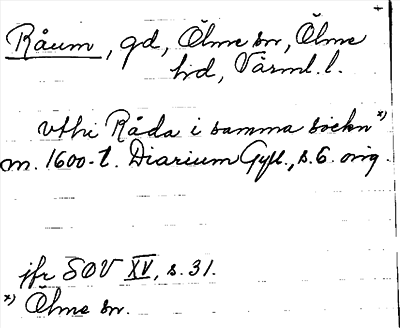 Råum, gd, Ölme sn, Ölme
hd, Värml. l.
vthi Råda i samma sockn x)
m. 1600-t. Diarium Gyll., s. 6. orig.
jfr SOV XV, s. 31.
x) Ölme sn.